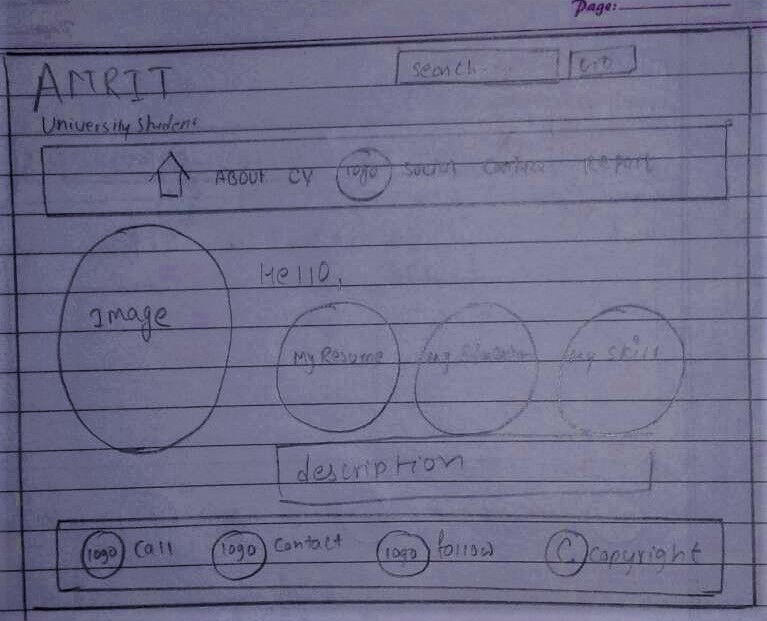 Page:
AMRIT
search... Go
University Student
ABOUT CV logo Social Contact Report
Hello,
Image
My Resume my my skill
description
logo Call logo Contact logo follow C copyright